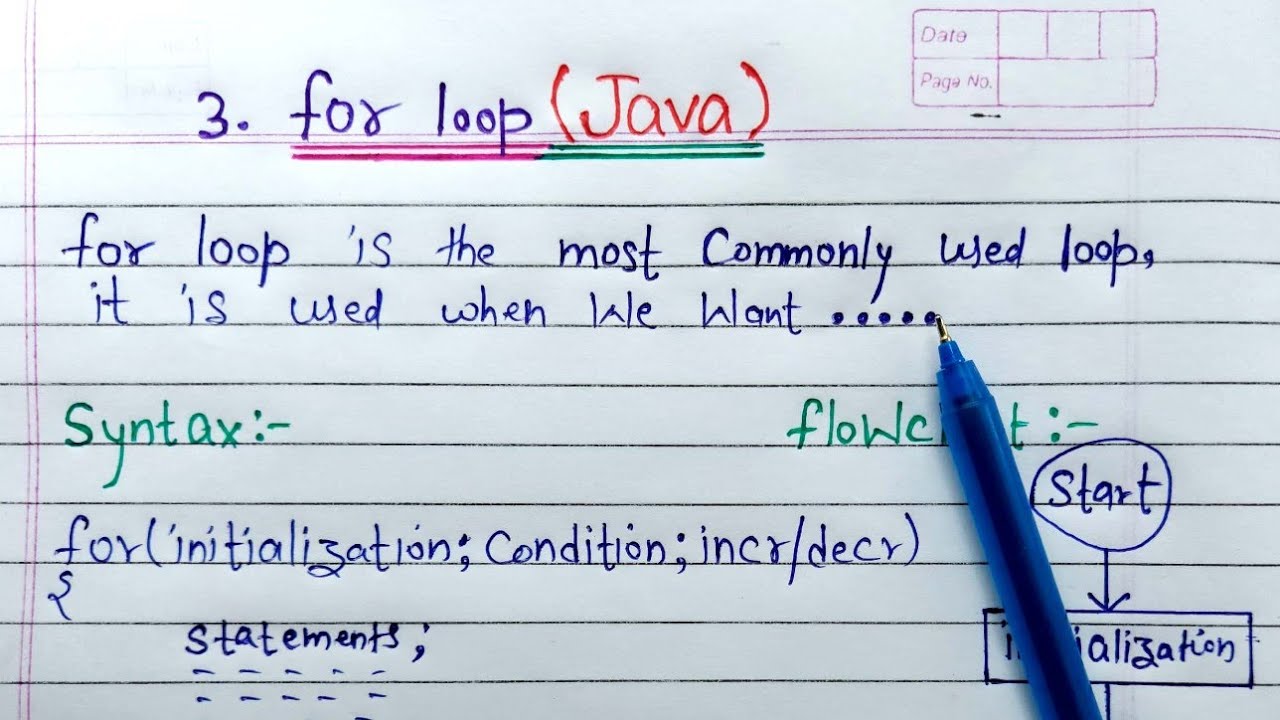 Date
Page No.
3. for loop (Java)
for loop is the most Commonly used loop,
it is used when We Want .....
Syntax:-
Start
for(initialization; Condition; incr/decr)
{
statements;